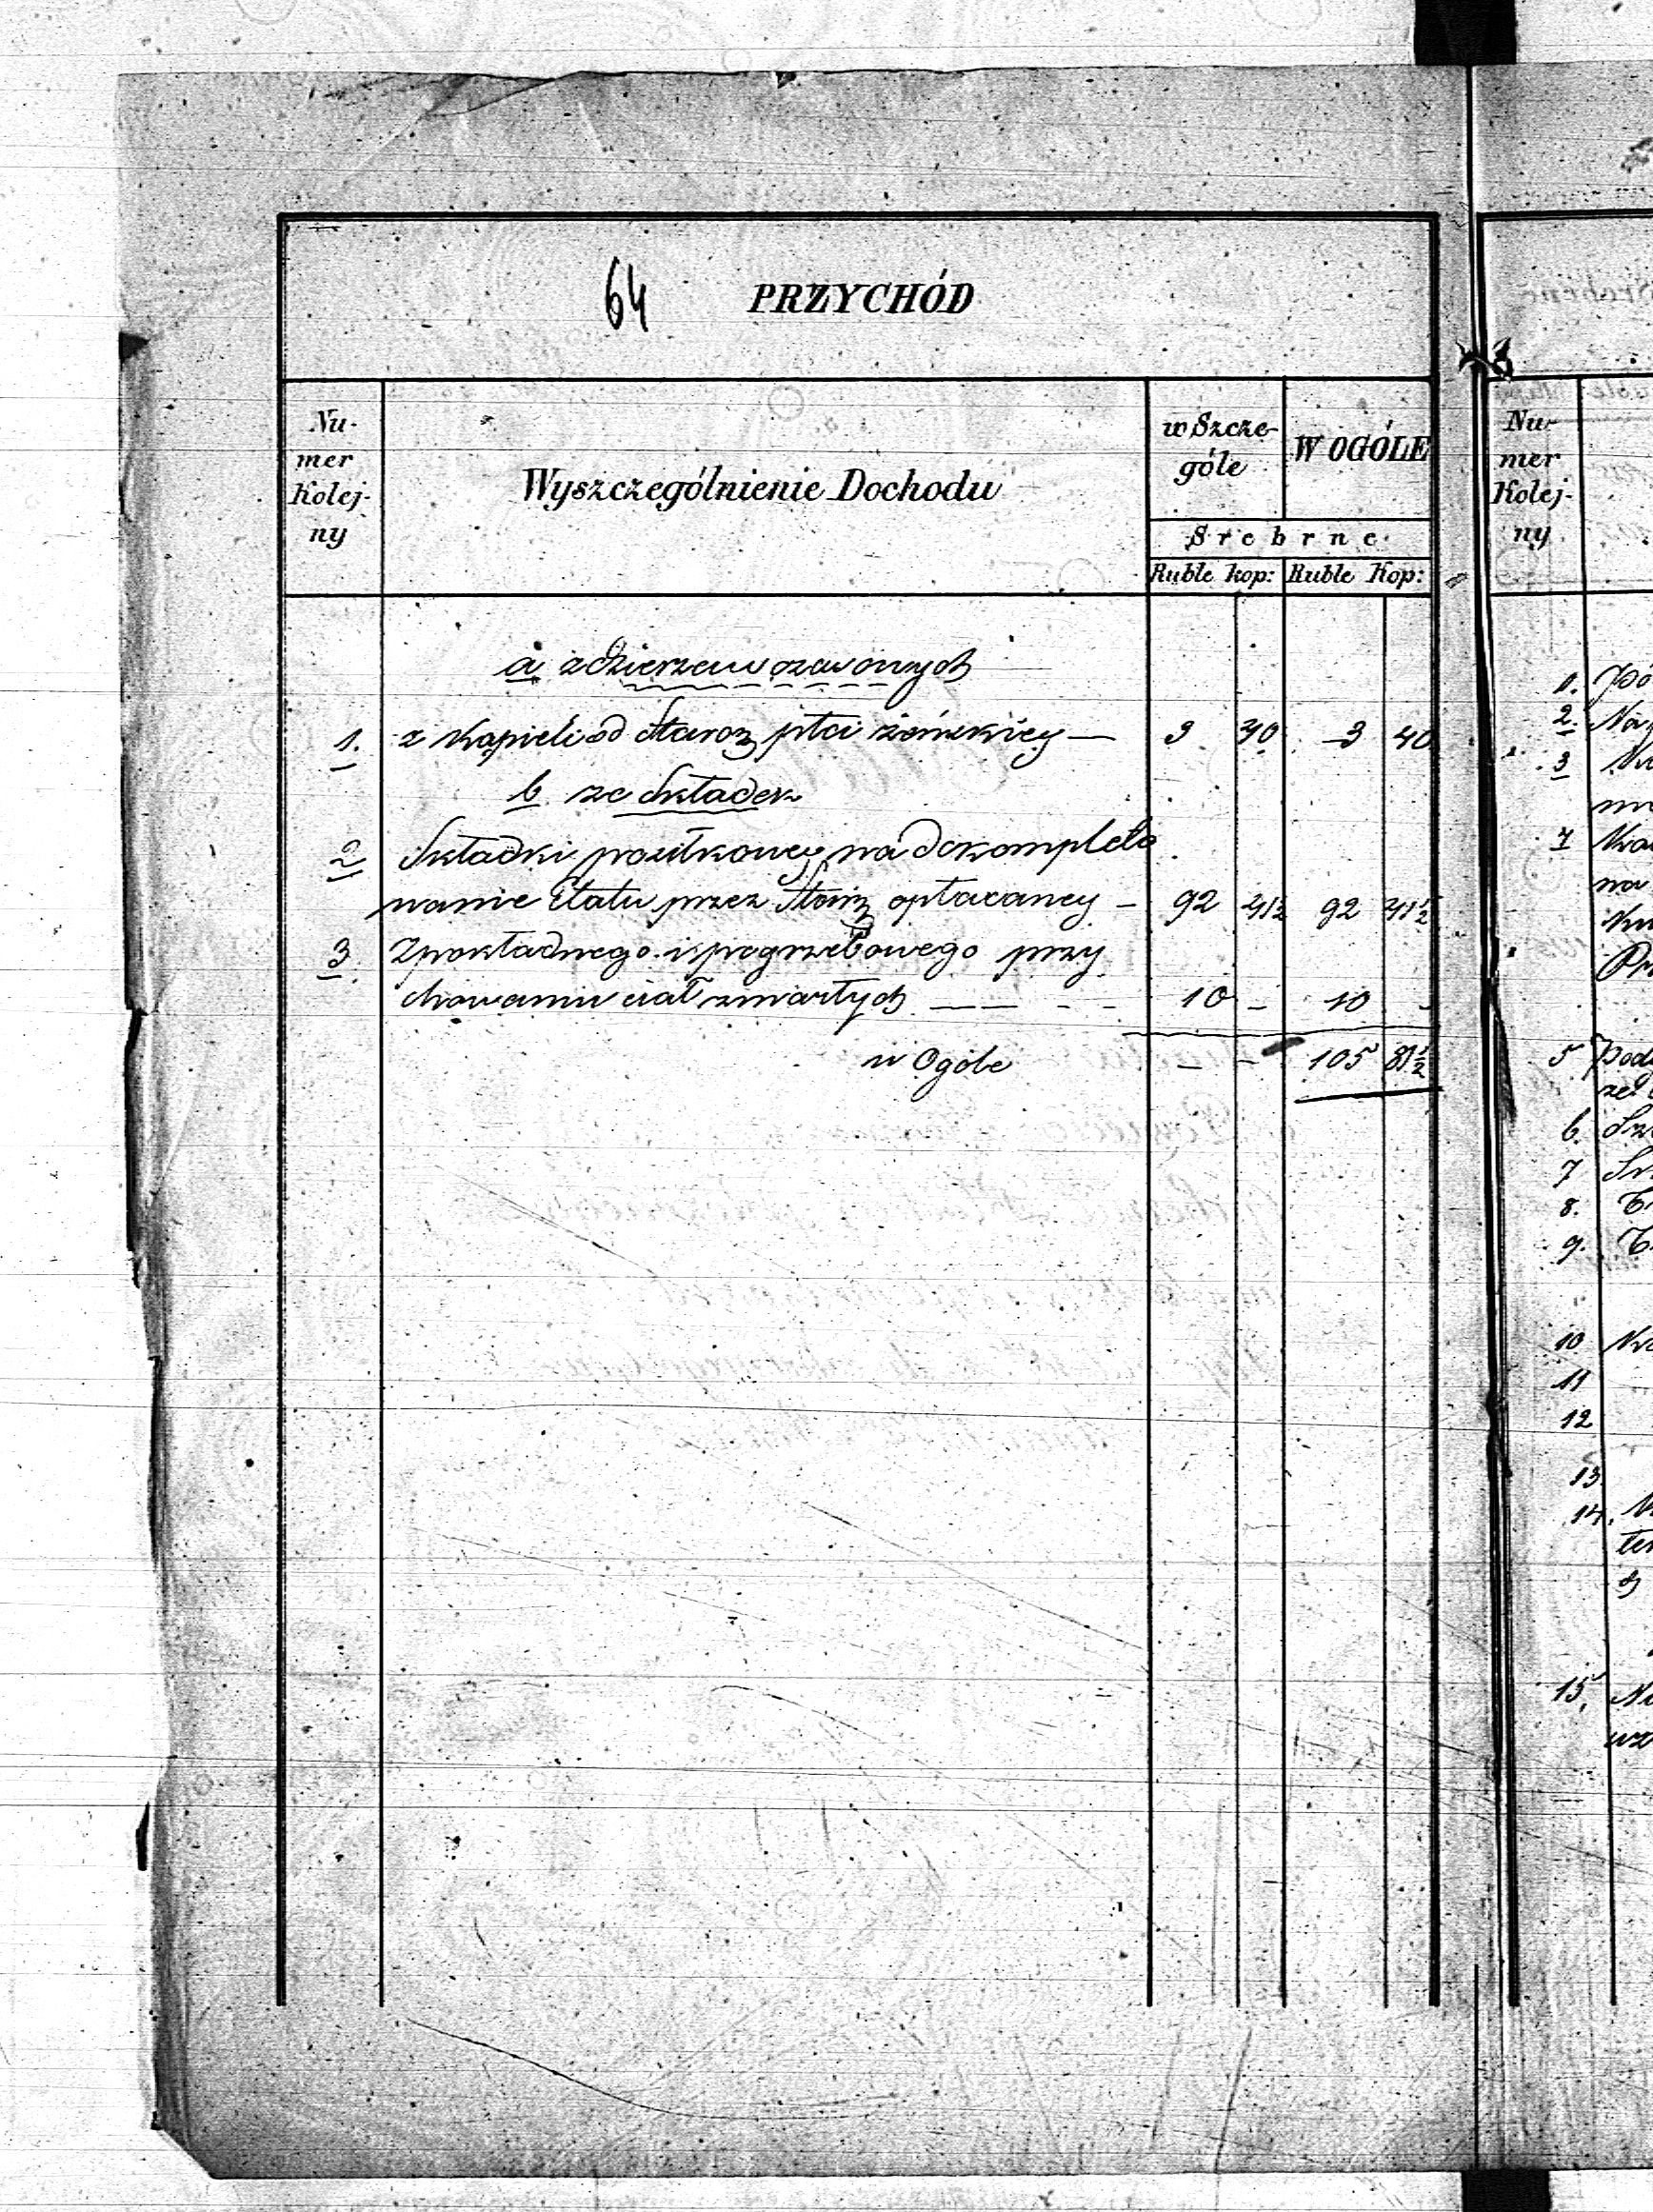 64 PRZYCHÓD
Nu-
mer
Kolej-
ny
Wyszczególnienie Dochodu
w Szcze-
góle
W OGÓLE
Srebrne
Ruble kop: Ruble Kop:
a z dzierzaw czasowych
1. z Kąpieli od Staroz płci żeńskiey — 3 40 3 40
b ze Składek
2 Składki posiłkowey na dokompleto
wanie Etatu przez Staroz opłacaney - 92 41½ 92 41½
3. Z pokładnego i pogrzebowego przy
chowaniu ciał zmarłych — — - - 10 - 10 -
w Ogóle — - 105 81½
Nu-
mer
Kolej-
ny
1.
2.
3
4
5
6.
7
8.
9.
10
11
12
13
14.
15.